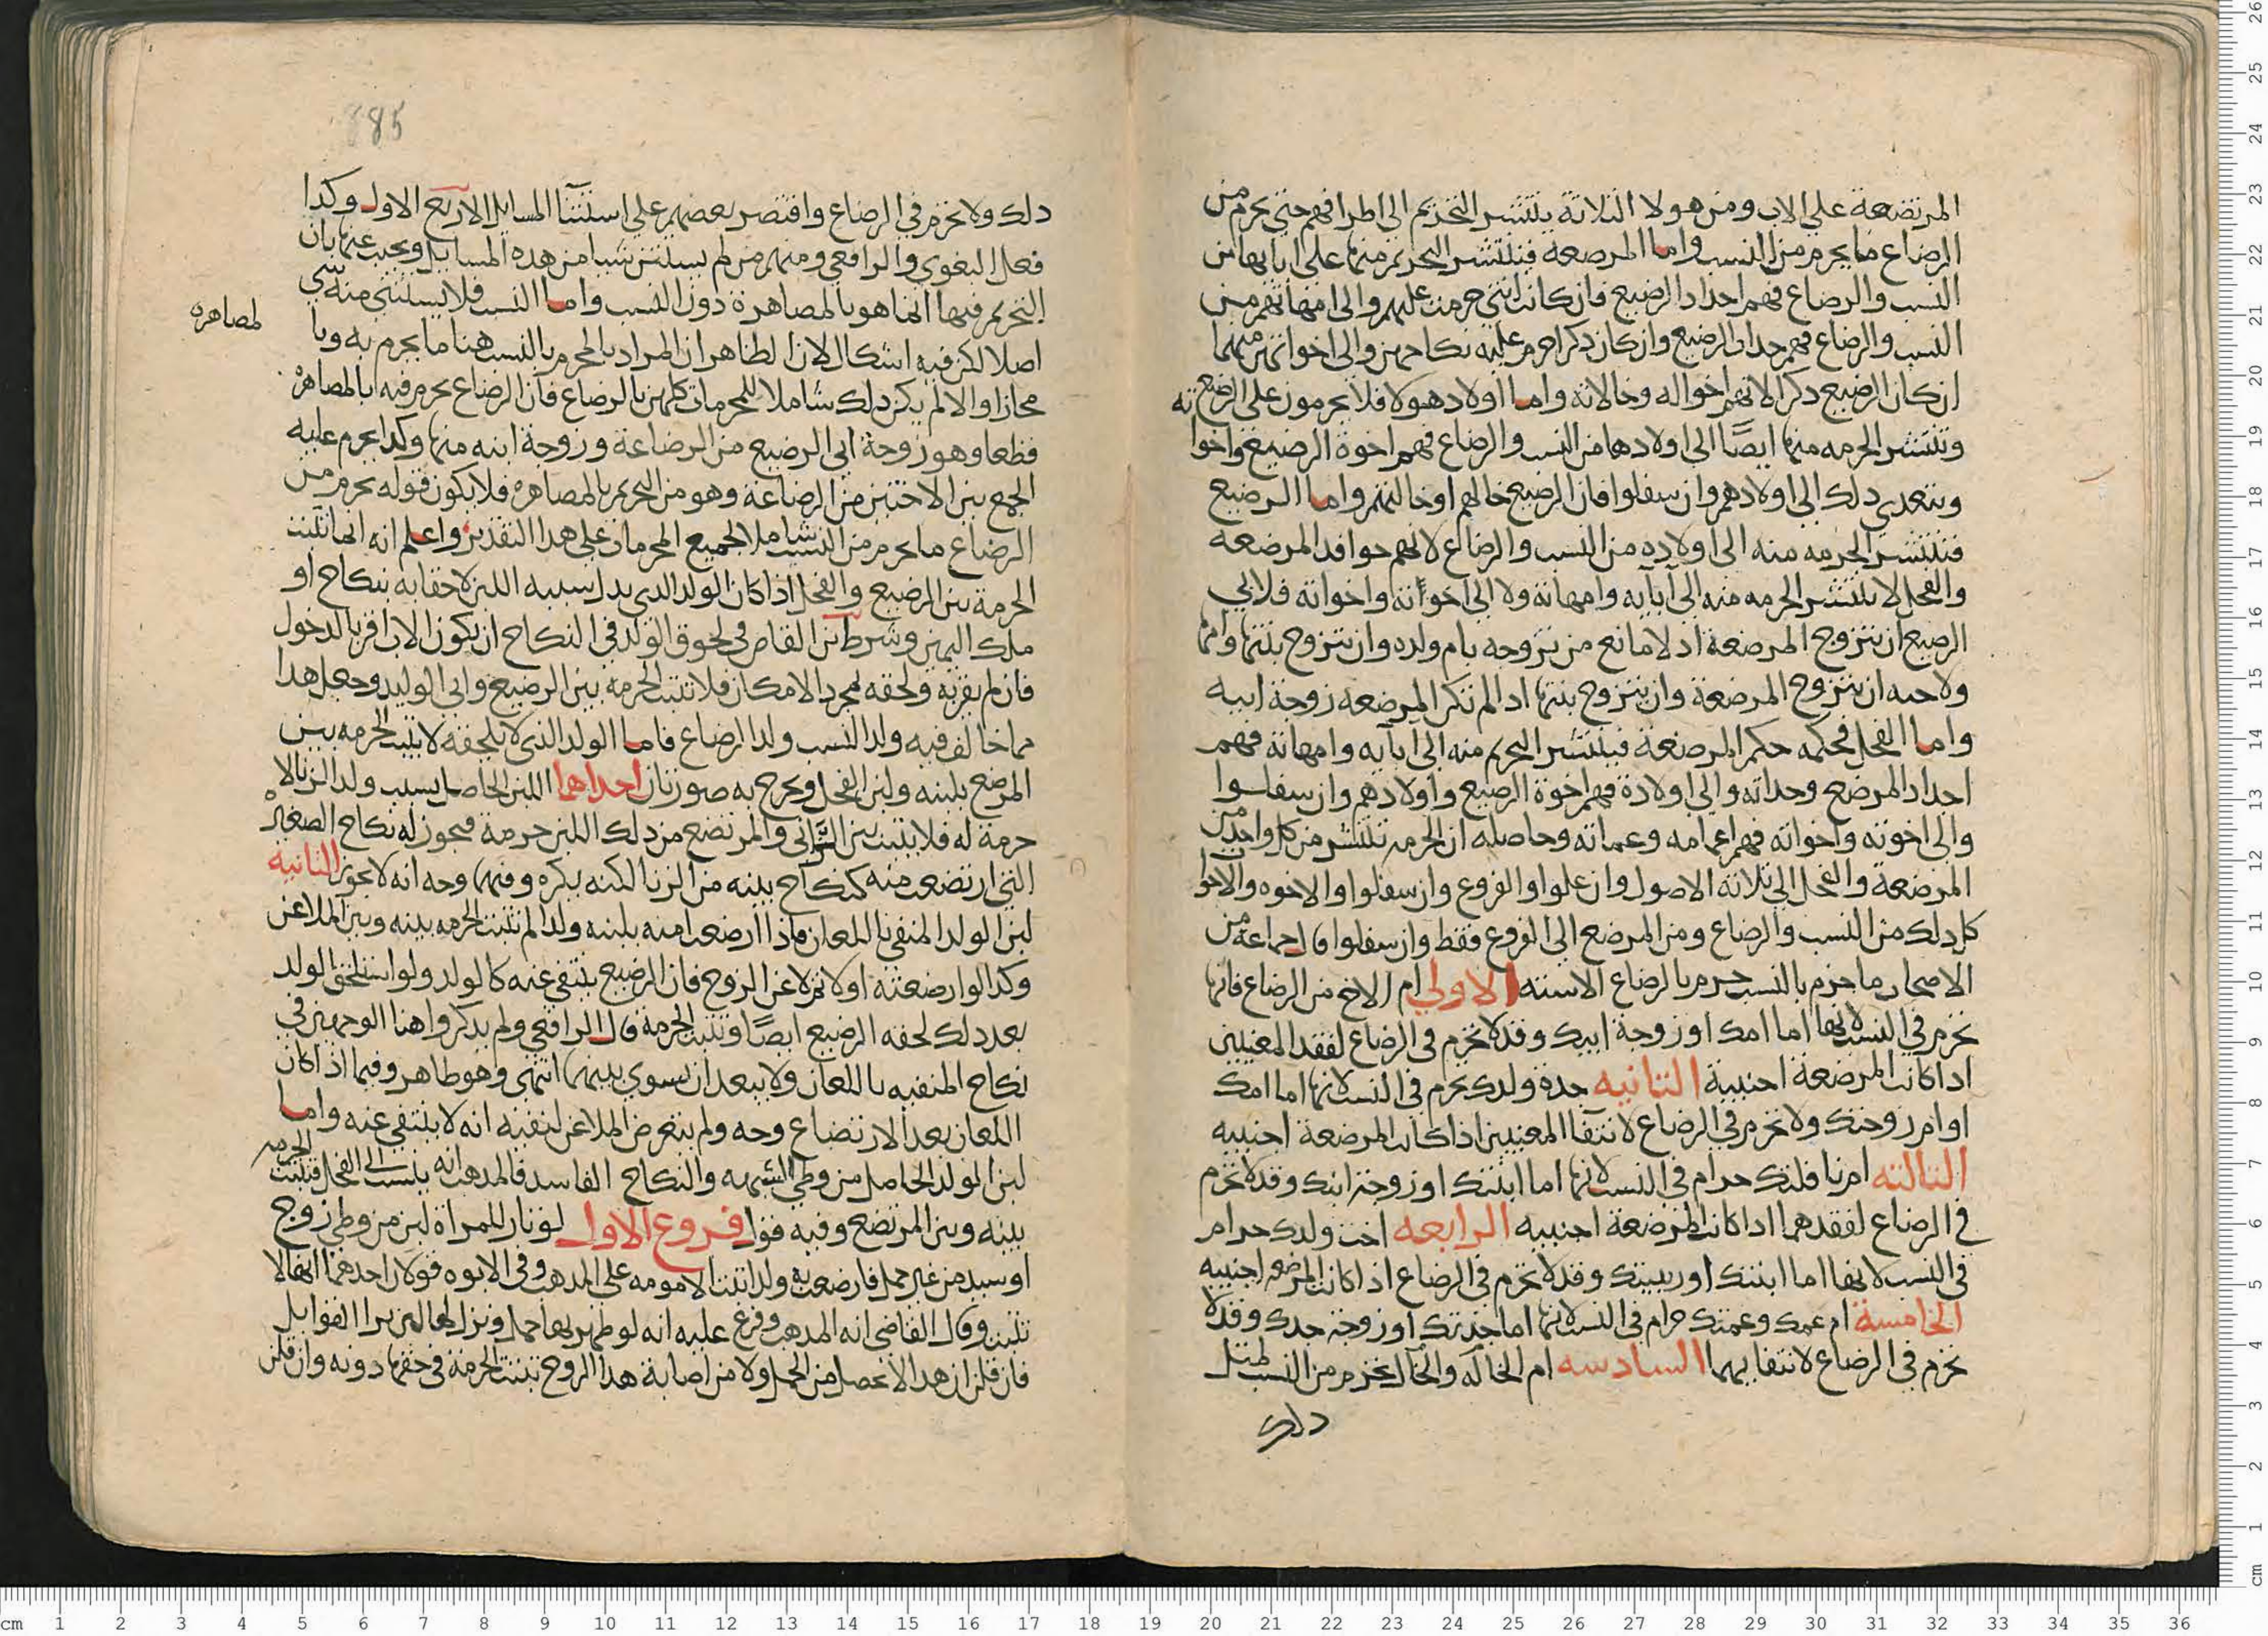 المرتضعة على الاب ومن هولا الثلاثة ينتشر التحريم الى اطرافهم حتى يحرم من
الرضاع ما يحرم من النسب واما المرضعة فينتشر التحريم منها على ابايها من
النسب والرضاع فهم اجداد الرضيع فان كانت انثى حرمت عليهم والى امهاتهم من
النسب والرضاع فهم جدات الرضيع وان كان ذكرا حرم عليه نكاحهن والى اخواتهن منهما
ان كان الرضيع ذكرا لانهم اخواله وخالاته واما اولاد هولا فلا يحرمون على الرضيع
وتنتشر الحرمه منها ايضًا الى اولادها من النسب والرضاع فهم اخوة الرضيع واخواته
ويتعدى ذلك الى اولادهم وان سفلوا فان الرضيع خالهم او خالتهم واما الرضيع
فتنتشر الحرمه منه الى اولاده من النسب والرضاع لانهم حوافد المرضعه
والفحل لا تنتشر الحرمه منه الى آبآيه وامهاته ولا الى اخوته واخواته فلابي
الرضيع ان يتزوج المرضعة اذ لا مانع من تزوجه بام ولده وان يتزوج بنتها وامها
ولاخيه ان يتزوج المرضعة وان يتزوج بنتها اذا لم تكن المرضعه زوجة ابيه
واما الفحل فحكمه حكم المرضعة فينتشر التحريم منه الى ابآيه وامهاته فهم
اجداد المرضع وجداته والى اولاده فهم اخوة الرضيع واولادهم وان سفلوا
والى اخوته واخواته فهم اعمامه وعماته وحاصله ان الحرمه تنتشر من كل واحد من
المرضعة والفحل الى ثلاثة الاصول وان علوا والفروع وان سفلوا والاخوه والاخوات
كل ذلك من النسب والرضاع ومن المرضع الى الفروع فقط وان سفلوا قال جماعة من
الاصحاب ما حرم بالنسب حرم بالرضاع الا سته الاولى ام الاخ من الرضاع فانها
تحرم في النسب لانها اما امك او زوجة ابيك وقد لا تحرم في الرضاع لفقد المعنيين
اذا كانت المرضعة اجنبية الثانيه جدة ولدك تحرم في النسب لانها اما امك
او ام زوجتك ولا تحرم في الرضاع لانتفآ المعنيين اذا كانت المرضعة اجنبيه
الثالثه ام نافلتك حرام في النسب لانها اما ابنتك او زوجة ابنك وقد لا تحرم
في الرضاع لفقدهما اذا كانت المرضعة اجنبيه الرابعه اخت ولدك حرام
في النسب لانها اما ابنتك او ربيبتك وقد لا تحرم في الرضاع اذا كانت المرضعه اجنبيه
الخامسة ام عمك وعمتك حرام في النسب لانها اما جدتك او زوجة جدك وقد لا
تحرم في الرضاع لانتفايهما السادسه ام الخاله والخال تحرم من النسب لمثل
ذلك
885
ذلك ولا تحرم في الرضاع واقتصر بعضهم على استثنآ المسايل الاربع الاول وكذا
فعل البغوي والرافعي ومنهم من لم يستثن شيا من هذه المسايل ويجيب عنها بان
التحريم فيها انما هو بالمصاهرة دون النسب واما النسب فلا يستثنى منه شي
لمصاهره
اصلا لكن فيه اشكال لان الظاهر ان المراد بالمحرم بالنسب هنا ما يحرم به وبا
مجازا والا لم يكن ذلك شاملا للمحرمات كلهن بالرضاع فان الرضاع يحرم فيه بالمصاهرة
قطعا وهو زوجة ابي الرضيع من الرضاعة وزوجة ابنه منها وكذا يحرم عليه
الجمع بين الاختين من الرضاعة وهو من التحريم بالمصاهره فلا يكون قوله يحرم من
الرضاع ما يحرم من النسب شاملا لجميع المحرمات على هذا التقدير واعلم انه انما تثبت
الحرمة بين المرضيع والفحل اذا كان الولد الذي يدر بسببه اللبن لاحقا به بنكاح او
ملك اليمين وشرط ابن القاص في لحوق الولد في النكاح ان يكون الاب اقر بالدخول
فان لم يقر به ولحقه لمجرد الامكان فلا تثبت الحرمه بين الرضيع وابي الوليد وجعل هذا
مما خالف فيه ولد النسب ولد الرضاع فاما الولد الذي لا يلحقه لا تثبت الحرمه بين
المرضع بلبنه ولبن الفحل ويخرج به صورتان احداهما اللبن الحاصل بسبب ولد الزنا لا
حرمة له فلا يثبت بين الزاني والمرتضع من ذلك اللبن حرمة فيجوز له نكاح الصغيرة
التي ارتضعت منه كنكاح بنته من الزنا لكنه يكره وفيها وجه انه لا يجوز الثانيه
لبن الولد المنفي باللعان فاذا ارضعت امنه بلبنه ولدا لم تثبت الحرمه بينه وبين الملاعن
وكذا لو ارضعته اولا ثم لاعن الزوج فان الرضيع ينتفي عنه كالولد ولو استلحق الولد
بعد ذلك لحقه الرضيع ايضًا وتثبت الحرمة قال الرافعي ولم يذكروا هنا الوجهين في
نكاح المنفيه باللعان ولا يبعد ان يسوى بينهما انتهى وهو ظاهر وفيما اذا كان
اللعان بعد الارتضاع وجه ولم يتعرض الملاعن لنفيه انه لا ينتفي عنه واما
لبن الولد الحاصل من وطي الشبهه والنكاح الفاسد فالمذهب انه ينسب الى الفحل فتثبت الحرمه
بينه وبين المرتضع وفيه قول فروع الاول لو ثار للمراة لبن من وطي زوج
او سيد من غير حمل فارضعت به ولدا تثبت الامومه على المذهب وفي الابوه قولان احدهما انها لا
تثبت وقال القاضي انه المذهب وفرع عليه انه لو ظهر بها حمل ونزل لها لبن برا القوابل
فان قلن ان هذا لا يحصل من الحمل ولا من اصابة هذا الزوج تثبت الحرمة في حقها دونه وان قلن